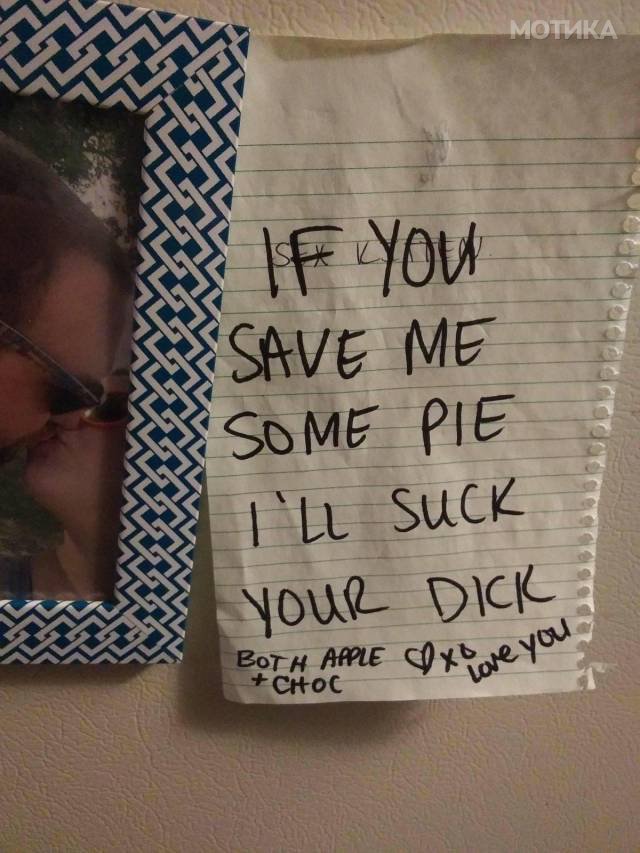 МОТИКА
IF YOU
SAVE ME
SOME PIE
I'LL SUCK
YOUR DICK
BOTH APPLE
+ CHOC
♡XO
LOVE YOU